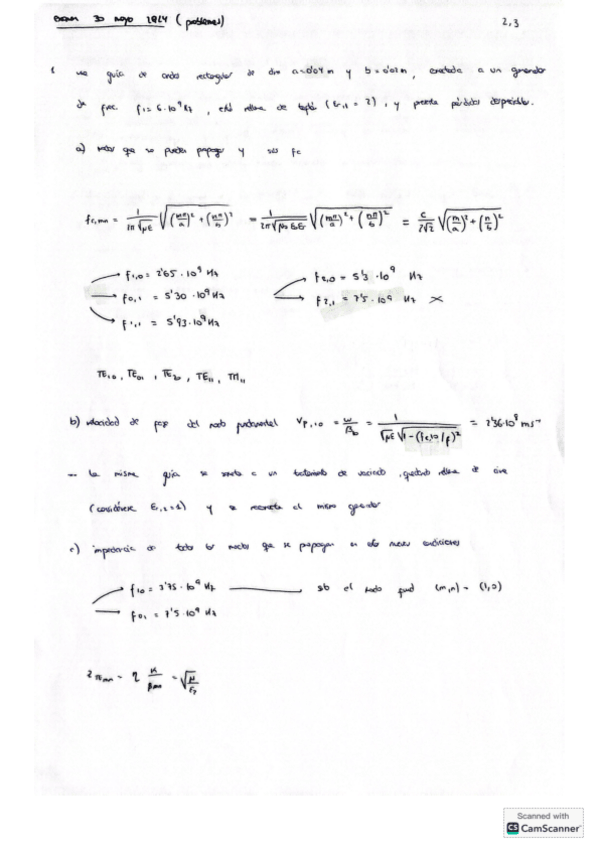 Examen 30 mayo 2024 (problemas)
2,3
1 una guía de ondas rectangular de dim a=0'04 m y b=0'02 m, conectada a un generador
de frec. f=6·10⁹ Hz, está rellena de teflón (εr,1 = 2), y presenta pérdidas despreciables.
a) modos que se pueden propagar y sus fc
fc,mn = 1/(2π√με) √((mπ/a)² + (nπ/b)²) = 1/(2π√μ₀ε₀εr) √((mπ/a)² + (nπ/b)²) = c/(2√2) √((m/a)² + (n/b)²)
f1,0 = 2'65·10⁹ Hz
f2,0 = 5'3·10⁹ Hz
f0,1 = 5'30·10⁹ Hz
f2,1 = 7'5·10⁹ Hz ×
f1,1 = 5'93·10⁹ Hz
TE10, TE01, TE20, TE11, TM11
b) velocidad de fase del modo fundamental Vp,10 = ω/β10 = 1/(√με √(1-(fc,10/f)²)) = 2'36·10⁸ ms⁻¹
- La misma guía se somete a un tratamiento de vaciado, quedando rellena de aire
(considérese εr,2=1) y se reconecta el mismo generador
c) impedancia de todos los modos que se propagan en estas nuevas condiciones
f10 = 3'75·10⁹ Hz
sólo el modo (m,n) = (1,0)
f01 = 7'5·10⁹ Hz
ZTEmn = η K/βmn = √μ/ε
Scanned with
CS CamScanner